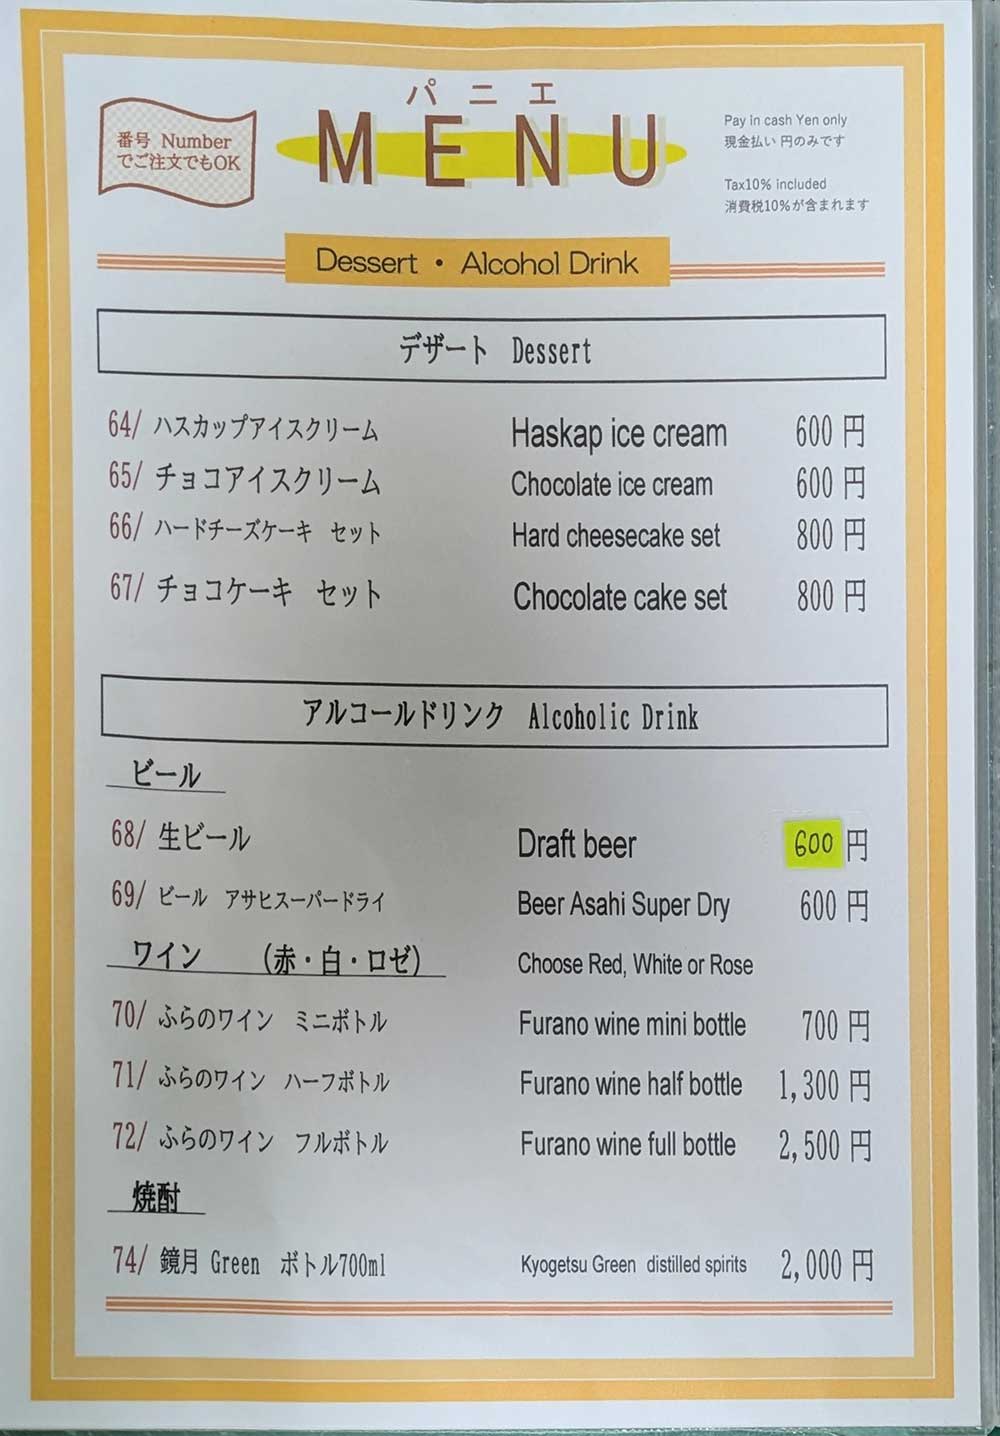 番号 Number
でご注文でもOK
パニエ
MENU
Pay in cash Yen only
現金払い 円のみです
Tax10% included
消費税10%が含まれます
Dessert ・ Alcohol Drink
デザート Dessert
64/ ハスカップアイスクリーム Haskap ice cream 600 円
65/ チョコアイスクリーム Chocolate ice cream 600 円
66/ ハードチーズケーキ セット Hard cheesecake set 800 円
67/ チョコケーキ セット Chocolate cake set 800 円
アルコールドリンク Alcoholic Drink
ビール
68/ 生ビール Draft beer 600 円
69/ ビール アサヒスーパードライ Beer Asahi Super Dry 600 円
ワイン (赤・白・ロゼ) Choose Red, White or Rose
70/ ふらのワイン ミニボトル Furano wine mini bottle 700 円
71/ ふらのワイン ハーフボトル Furano wine half bottle 1,300 円
72/ ふらのワイン フルボトル Furano wine full bottle 2,500 円
焼酎
74/ 鏡月 Green ボトル700ml Kyogetsu Green distilled spirits 2,000 円